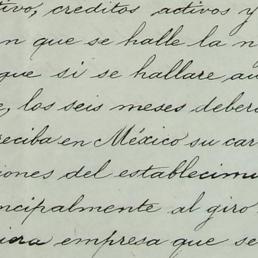 tivo, creditos activos y
n que se halle la n
que si se hallare au
e, los seis meses deber
reciba en México su car
iones del establecimi
ncipalmente al giro
empresa que se